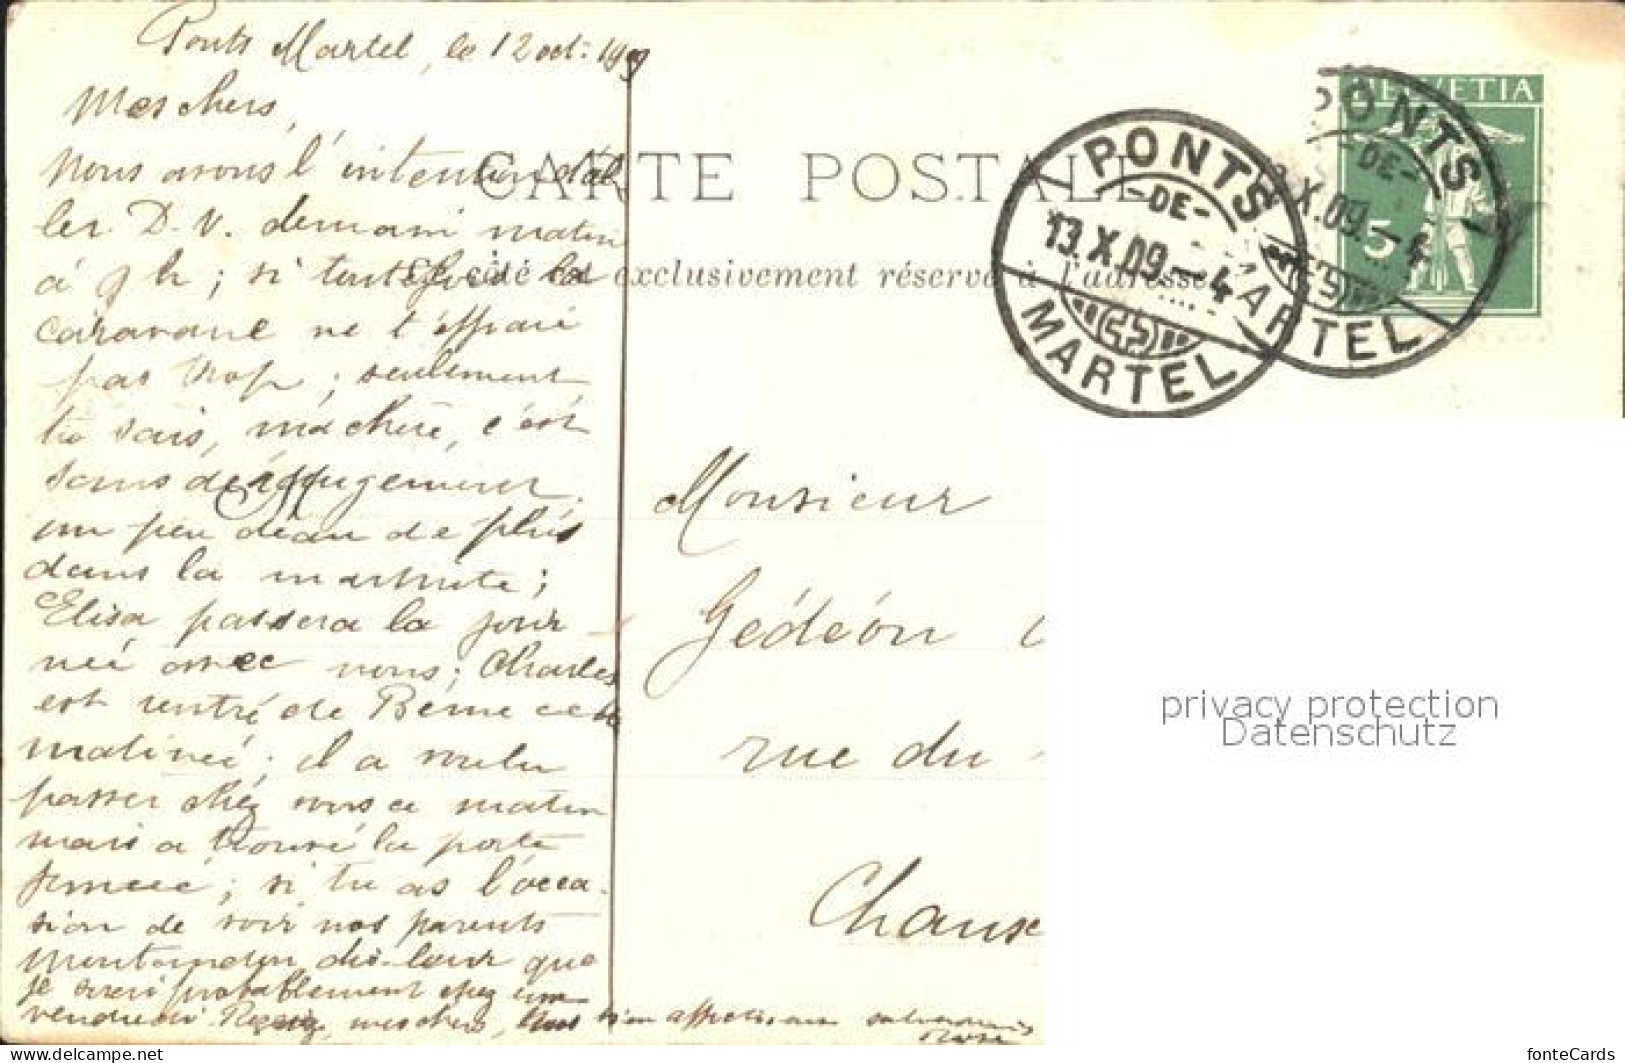 Ponts Martel, le 12 oct. 1909
Mes chers,
Nous avons l'intention d'al-
ler D.V. demain matin
à 9 h ; si toutefois la
caravane ne t'éffraie
pas trop ; seulement
tu sais, ma chère, c'est
sans dérangement
un peu d'eau de plus
dans la marmite ;
Elisa passera la jour
née avec nous ; Charles
est rentré de Berne cette
matinée ; il a voulu
passer chez vous ce matin
mais a trouvé la porte
fermée ; si tu as l'occa-
sion de voir nos parents
Montandon, dis-leur que
je serai probablement chez eux
vendredi. Recevez, mes chers, nos bien affectueuses salutations
Rose
CARTE POSTALE
Ce côté est exclusivement réservé à l'adresse
PONTS
-DE-
13.X.09.-4
MARTEL
HELVETIA
5
PONTS
-DE-
X.09.-4
MARTEL
Monsieur
Gédéon
rue du
Chaux
privacy protection
Datenschutz
fonteCards